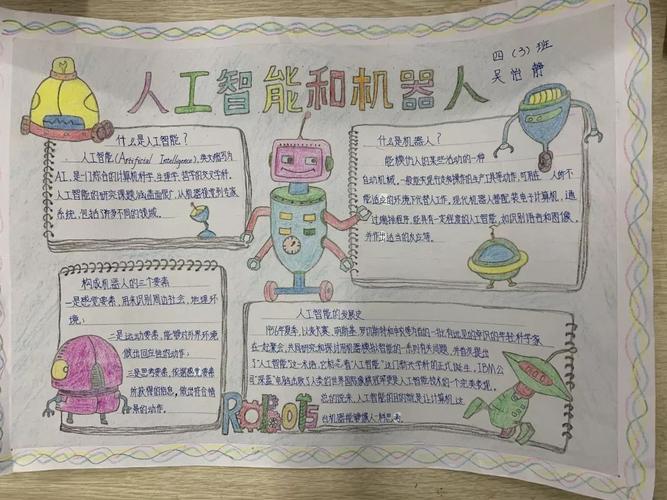 人工智能和机器人
四(3)班
吴怡静
什么是人工智能?
人工智能(Artificial Intelligence),英文缩写为
AI,是一门综合的计算机科学、生理学、哲学的交叉学科。
人工智能的研究课题涵盖面很广,从机器视觉到专家
系统,包括了许多不同的领域。
什么是机器人?
能模仿人的某些活动的一种
自动机械,一般能实现行走和操作的生产工具等动作,可用在 人的不
能适应的环境下代替人工作。现代机器人都配装电子计算机,通
过编排程序,能具有一定程度的人工智能,如识别语言和图像,
并作出适当的反应等。
构成机器人的三个要素
一是感觉要素,用来识别周边社会、地理环
境;
二是运动要素,能够对外界环境
做出回应性的动作;
三是思考要素,依据感觉要素
所获得的信息,做出符合情
景的动作。
人工智能的发展史
1956年夏季,以麦卡赛、明斯基、罗切斯特和申农等为首的一批有远见卓识的年轻科学家
在一起聚会,共同研究和探讨用机器模拟智能的一系列有关问题,并首先提出
了"人工智能"这一术语,它标志着"人工智能"这门新兴学科的正式诞生。IBM公
司"深蓝"电脑击败了人类的世界国际象棋冠军更是人工智能技术的一个完美表现。
总的说来,人工智能的目的就是让计算机这
台机器能够像人一样思考
Robots